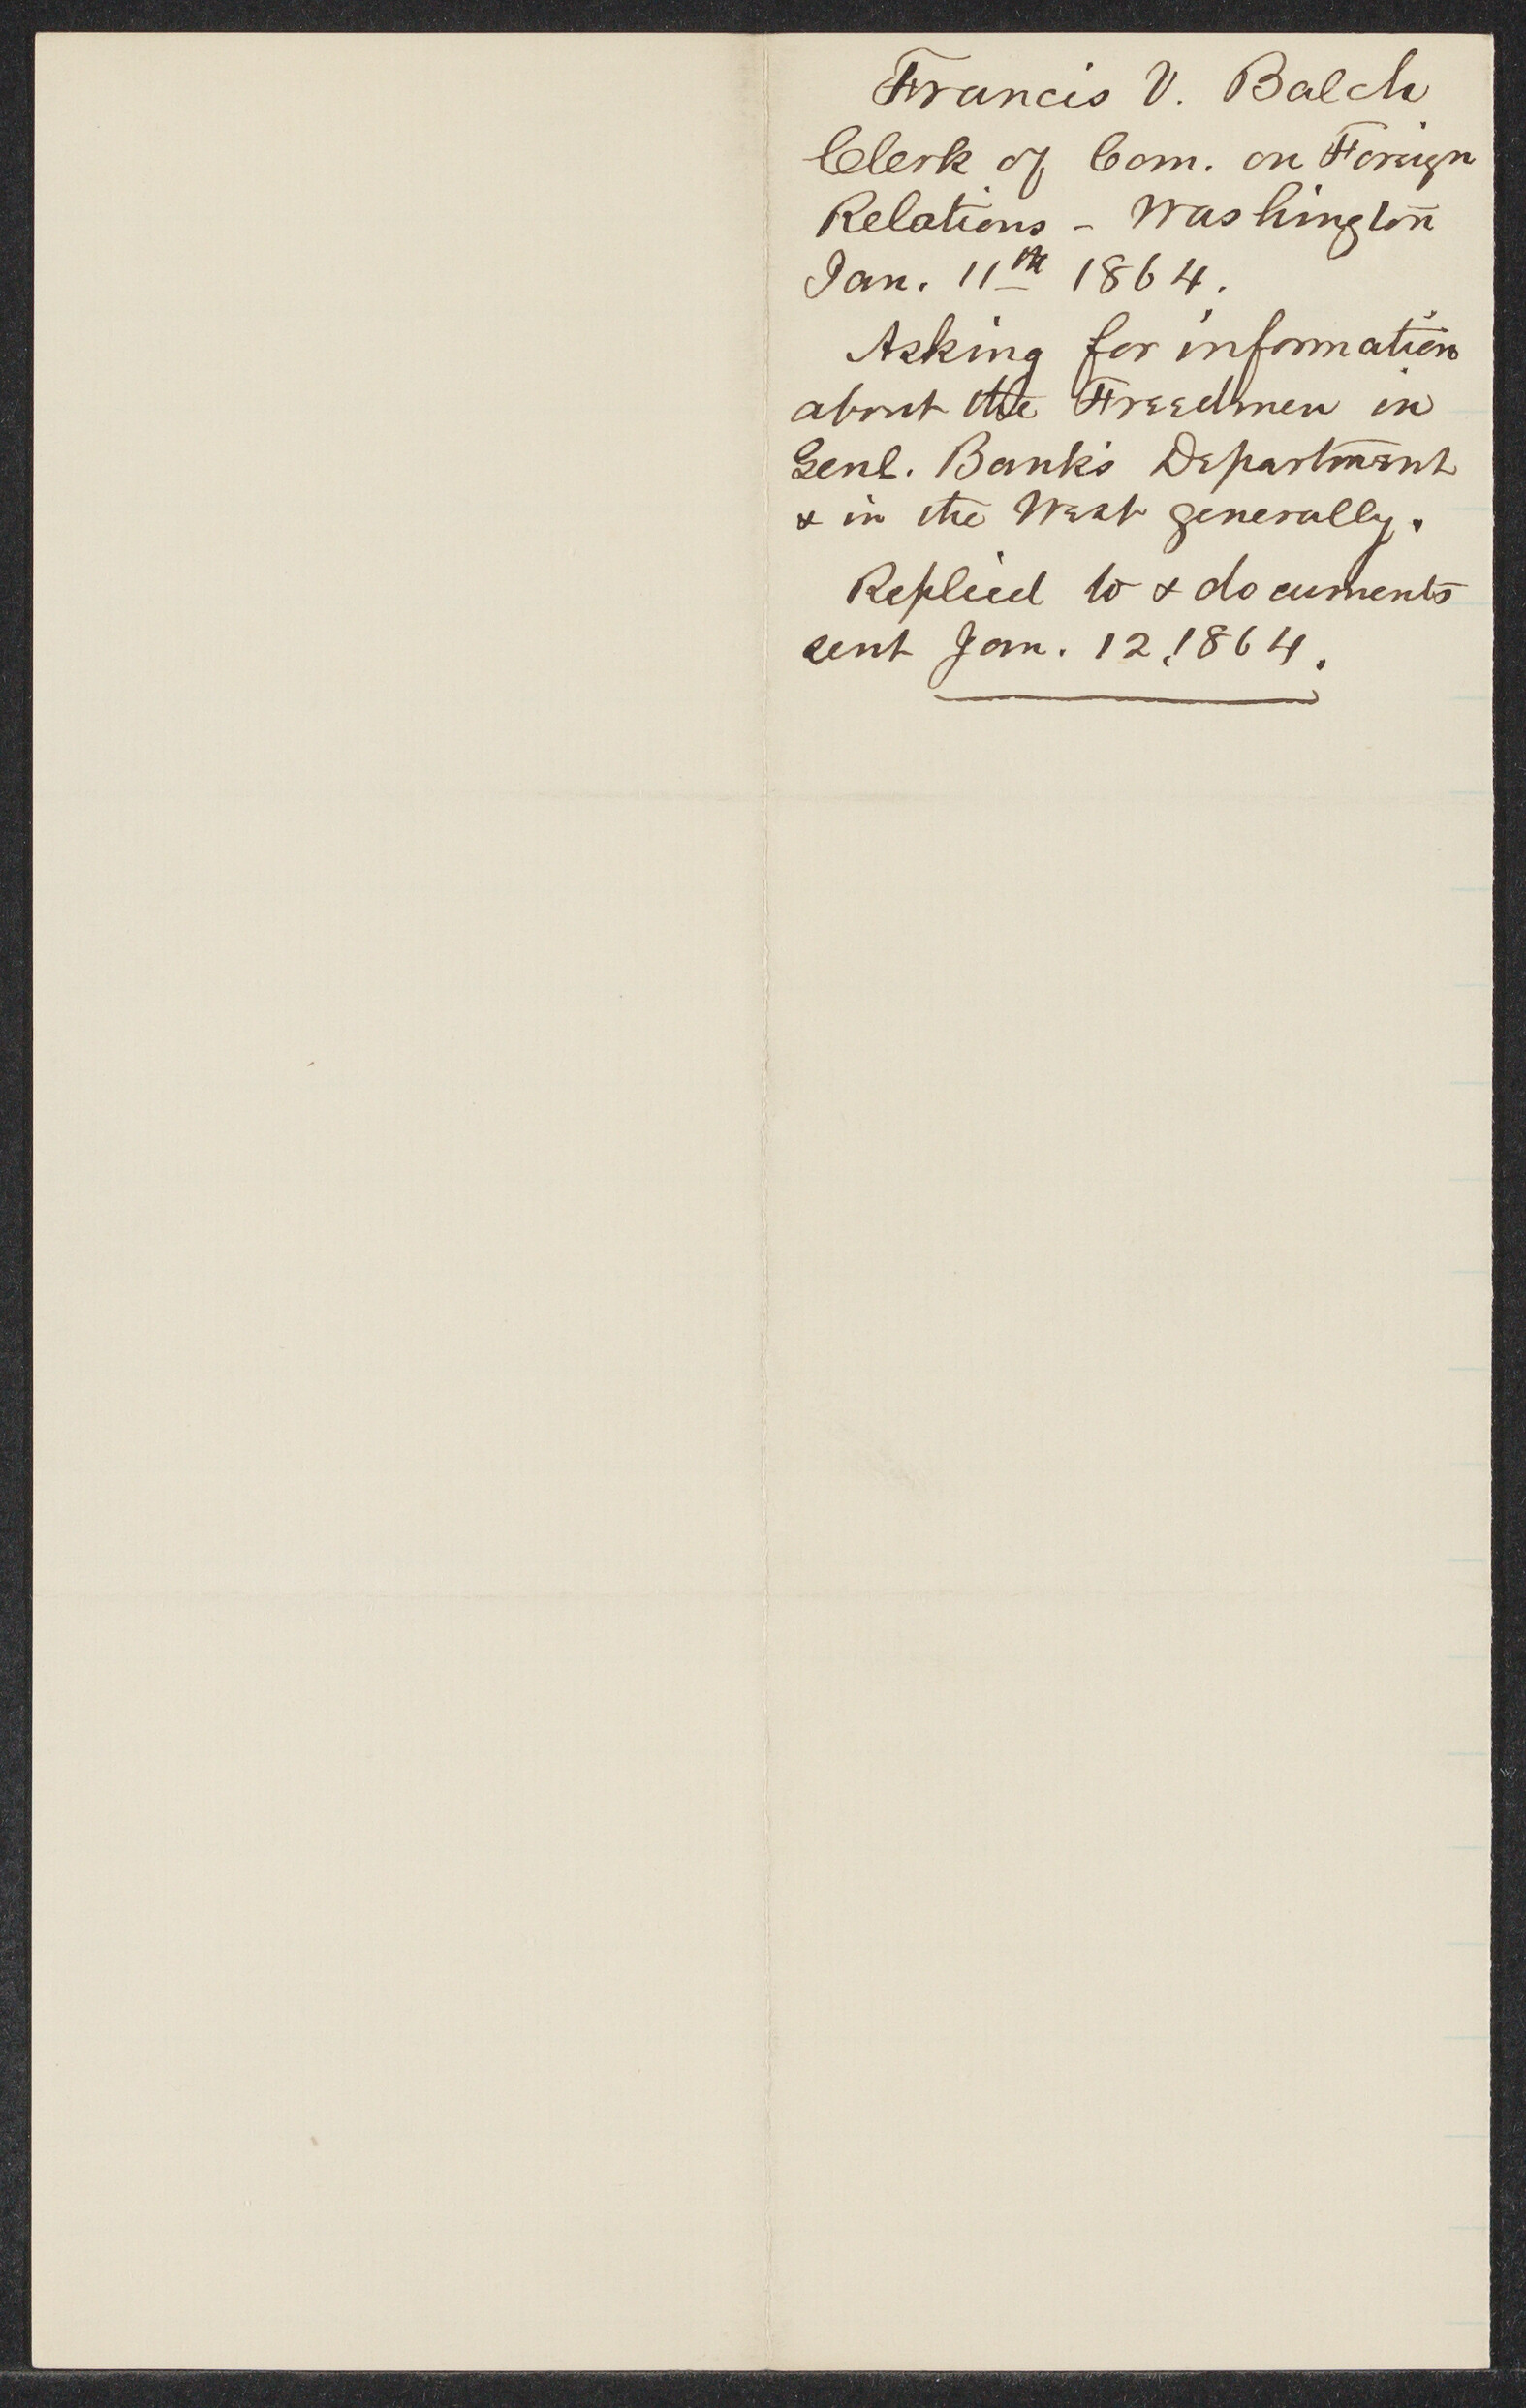 Francis V. Balch
Clerk of Com. on Foreign
Relations - Washington
Jan. 11th 1864.
Asking for information
about the Freedmen in
Genl. Bank's Department
& in the West generally.
Replied to & documents
sent Jan. 12, 1864.